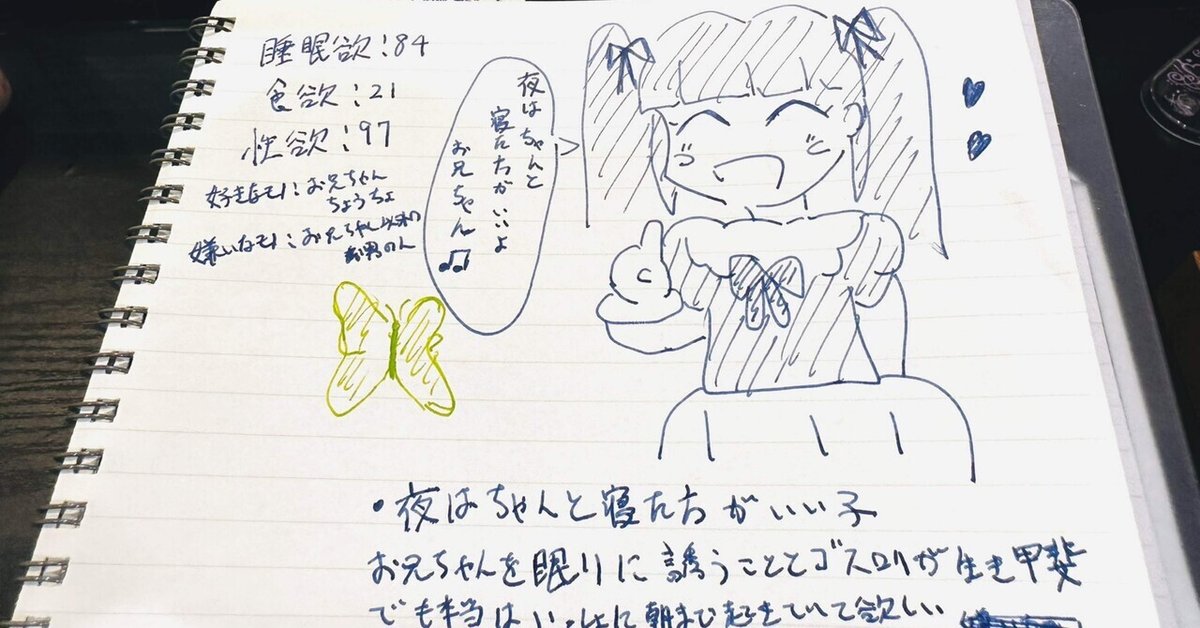 睡眠欲:84
食欲:21
性欲:97
好きなもの:お兄ちゃん
ちょうちょ
嫌いなもの:お兄ちゃん以外の
男の人
夜はちゃんと
寝た方がいいよ
お兄ちゃん♫
・夜はちゃんと寝た方がいい子
お兄ちゃんを眠りに誘うこととゴスロリが生き甲斐
でも本当はいっしょに朝まで起きていて欲しい